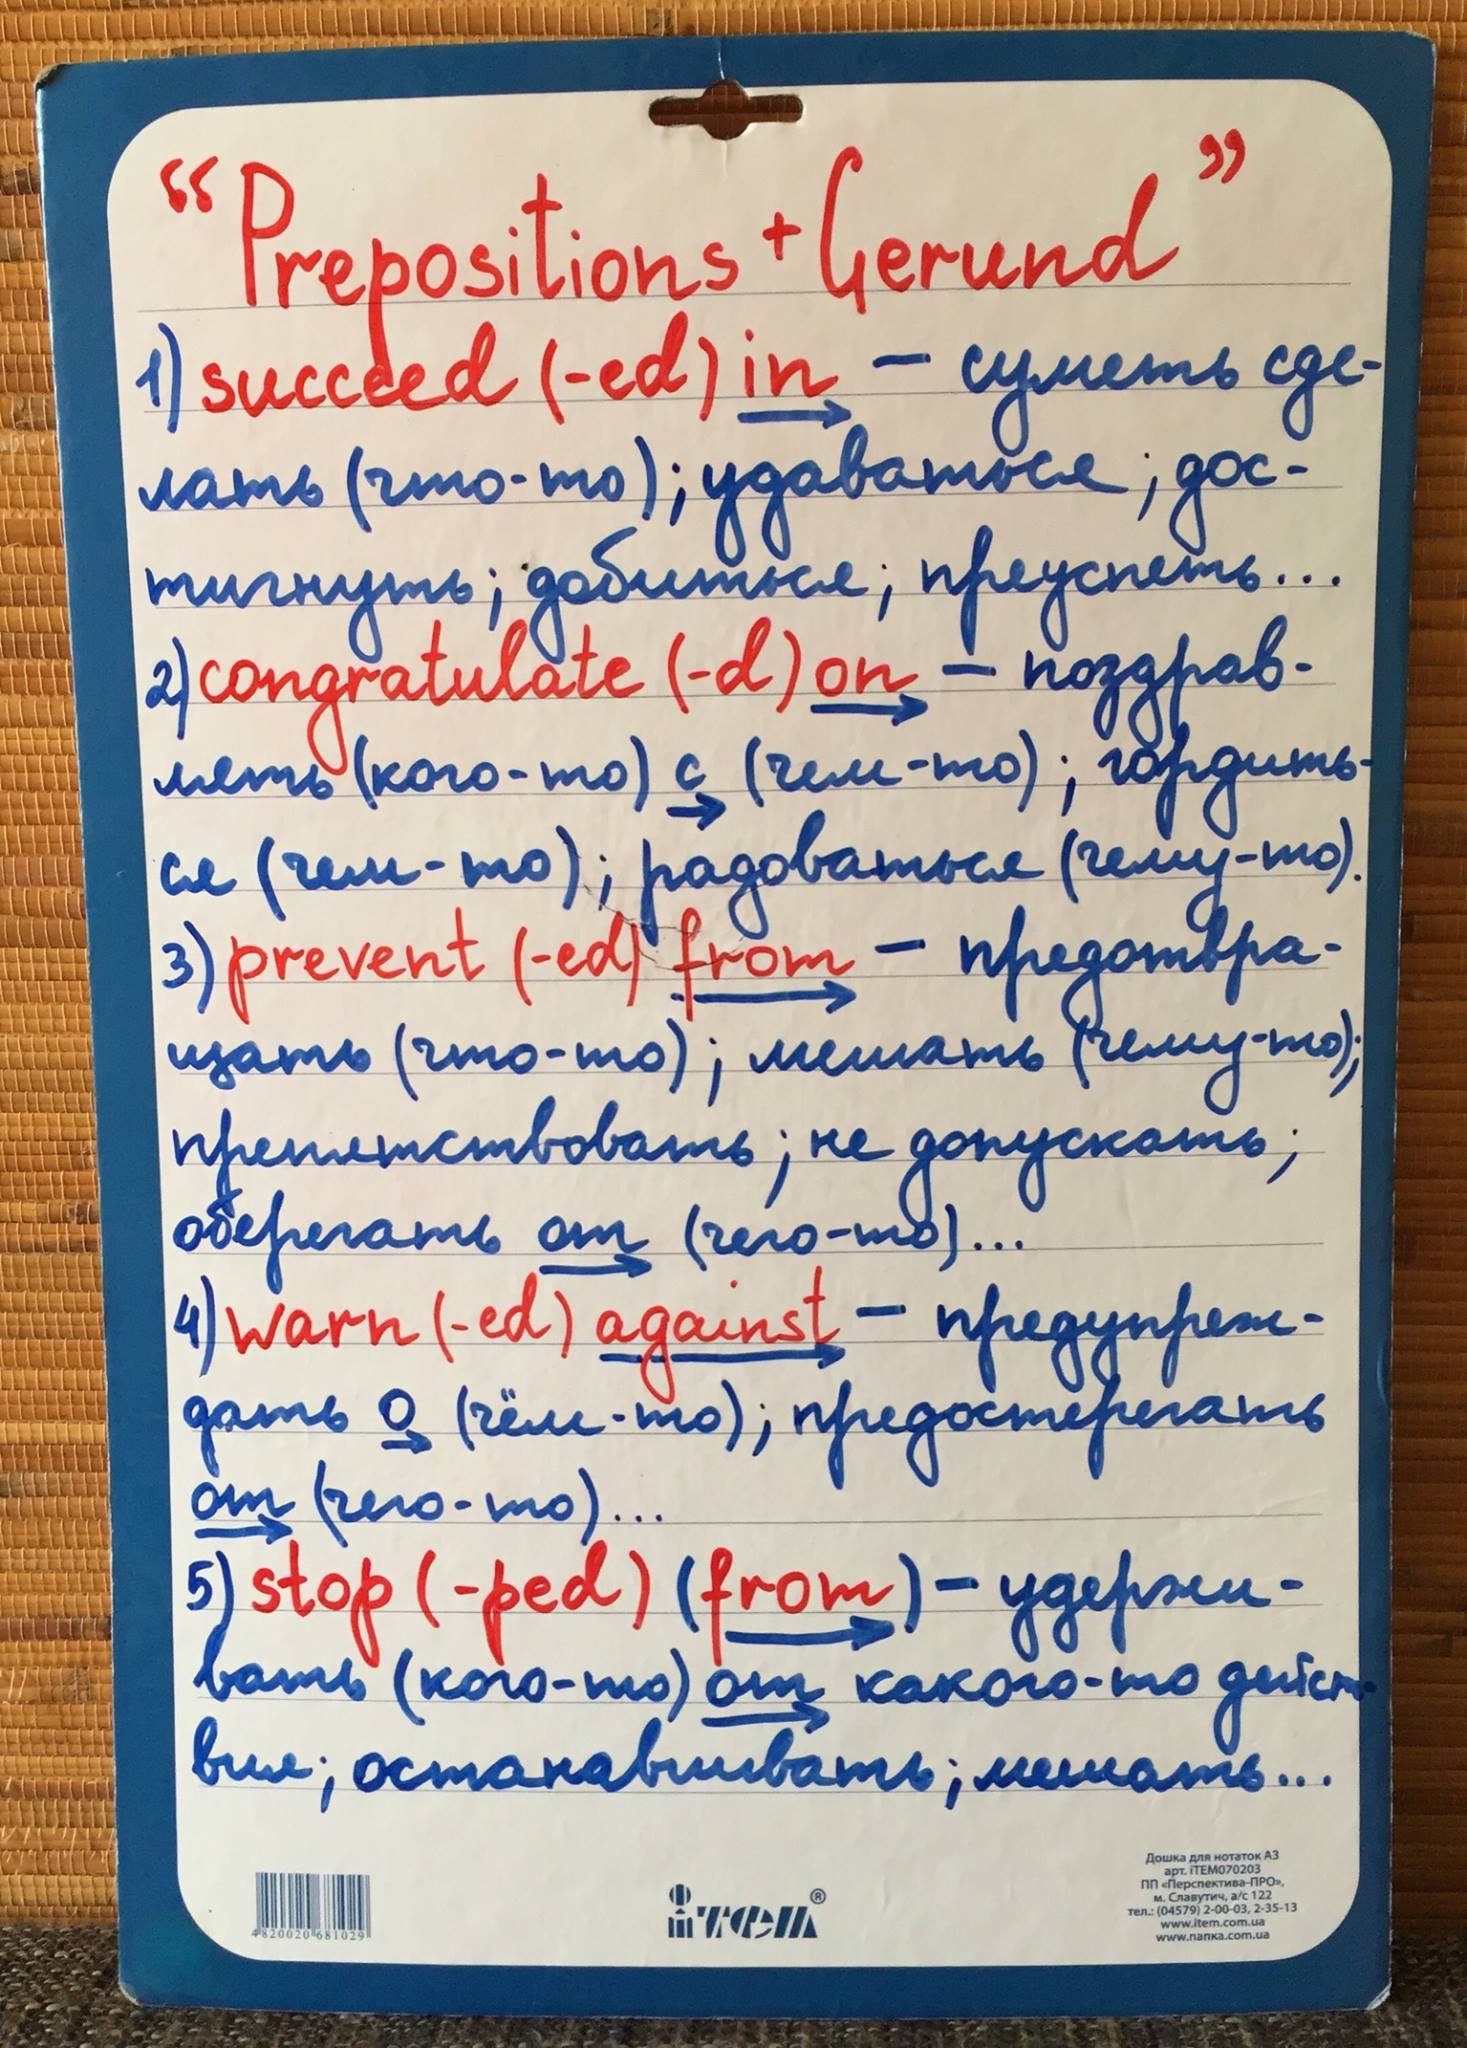 “Prepositions + Gerund”
1) succeed (-ed) in – суметь сде-
лать (что-то); удаваться; дос-
тигнуть; добиться; преуспеть...
2) congratulate (-d) on – поздрав-
лять (кого-то) с (чем-то); гордить-
ся (чем-то); радоваться (чему-то).
3) prevent (-ed) from – предотвра-
щать (что-то); мешать (чему-то);
препятствовать; не допускать;
оберегать от (чего-то)...
4) warn (-ed) against – предупреж-
дать о (чём-то); предостерегать
от (чего-то)...
5) stop (-ped) (from) – удержи-
вать (кого-то) от какого-то дейст-
вия; останавливать; мешать...
4820020681029
iтем®
Дошка для нотаток А3
арт. iTEM070203
ПП «Перспектива-ПРО»,
м. Славутич, а/с 122
тел.: (04579) 2-00-03, 2-35-13
www.item.com.ua
www.папка.com.ua